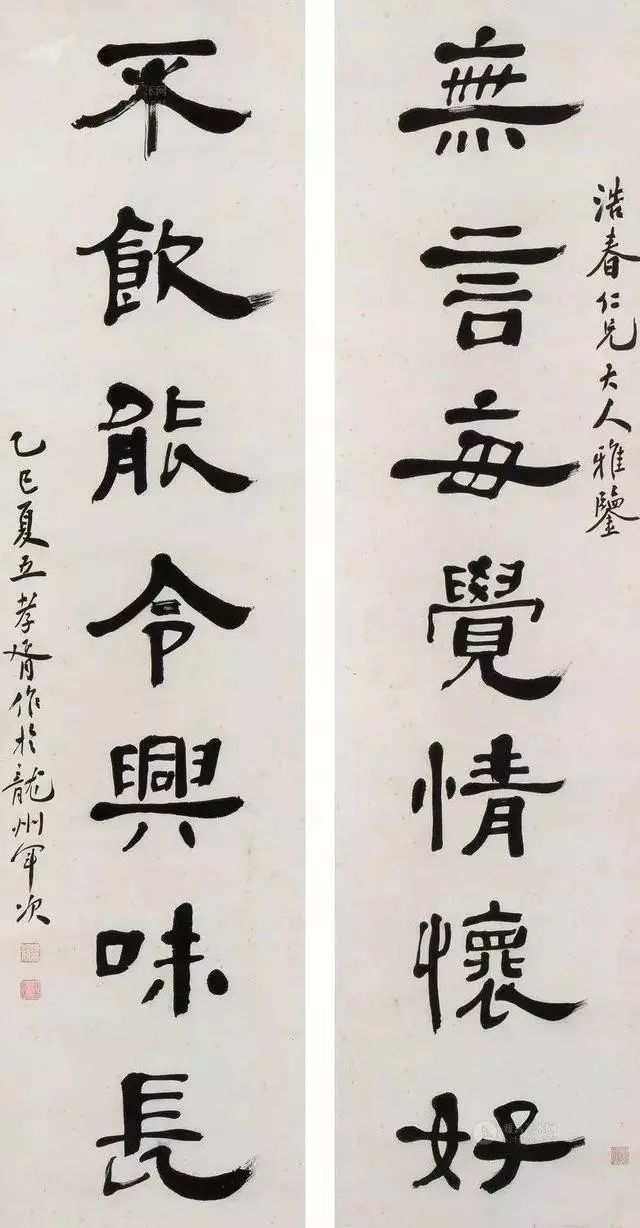 浩春仁兄大人雅鑒
無言每覺情懷好
不飲能令興味長
乙巳夏五孝胥作於龍州軍次